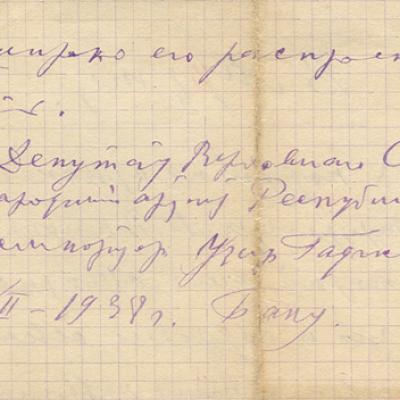 широко его распрост
Депутат Верховного С
Народный артист Республи
композитор Узеир Гаджи
VII – 1938 г. Баку.